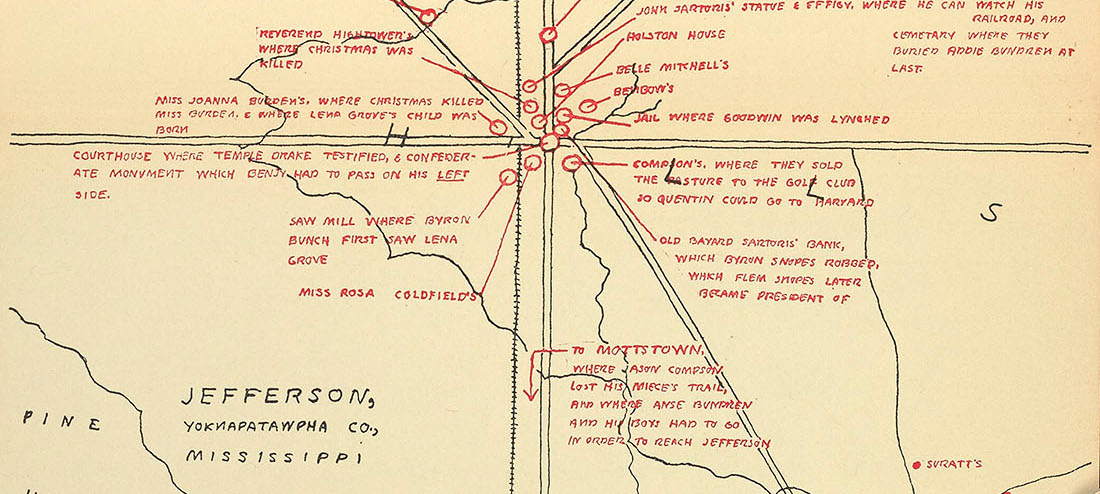 JOHN SARTORIS' STATUE & EFFIGY, WHERE HE CAN WATCH HIS
RAILROAD, AND
CEMETARY WHERE THEY
BURIED ADDIE BUNDREN AT
LAST.
REVEREND HIGHTOWER'S
WHERE CHRISTMAS WAS
KILLED
HOLSTON HOUSE
BELLE MITCHELL'S
BENBOW'S
JAIL WHERE GOODWIN WAS LYNCHED
MISS JOANNA BURDEN'S, WHERE CHRISTMAS KILLED
MISS BURDEN, & WHERE LENA GROVE'S CHILD WAS
BORN
H
COURTHOUSE WHERE TEMPLE DRAKE TESTIFIED, & CONFEDER-
ATE MONUMENT WHICH BENJY HAD TO PASS ON HIS LEFT
SIDE.
COMPSON'S, WHERE THEY SOLD
THE PASTURE TO THE GOLF CLUB
SO QUENTIN COULD GO TO HARVARD
L L S
SAW MILL WHERE BYRON
BUNCH FIRST SAW LENA
GROVE
OLD BAYARD SARTORIS' BANK,
WHICH BYRON SNOPES ROBBED,
WHICH FLEM SNOPES LATER
BECAME PRESIDENT OF
MISS ROSA COLDFIELD'S
TO MOTTSTOWN,
WHERE JASON COMPSON
LOST HIS NIECE'S TRAIL,
AND WHERE ANSE BUNDREN
AND HIS BOYS HAD TO GO
IN ORDER TO REACH JEFFERSON
JEFFERSON,
YOKNAPATAWPHA CO.,
MISSISSIPPI
PINE
SURATT'S